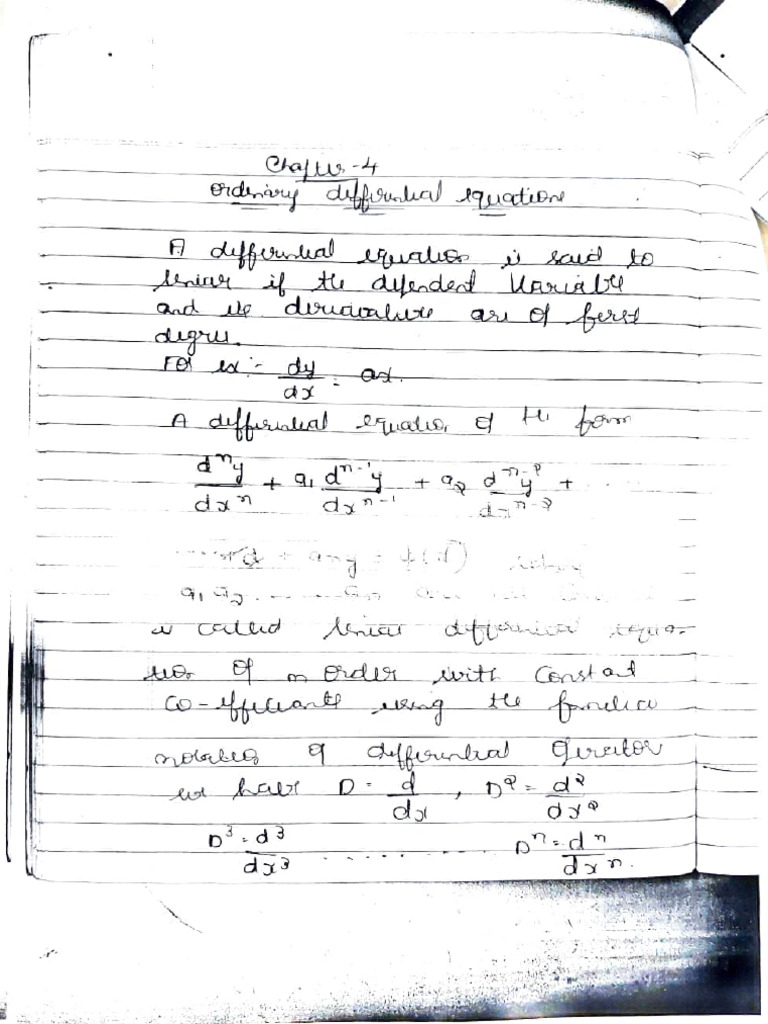 Chapter-4
ordinary differential equations
A differential equation is said to
linear if the dependent Variable
and its derivative are of first
degree.
For ex:- dy/dx = ax.
A differential equation of the form
dⁿy/dxⁿ + a₁ dⁿ⁻¹y/dxⁿ⁻¹ + a₂ dⁿ⁻²y/dxⁿ⁻² + ...
+ any =
a₁ a₂ ........ an are
is called linear differential equa-
tion of n order with Constant
co-efficients using the
notation of differential operator
we have D = d/dx, D² = d²/dx²
D³ = d³/dx³ ............ Dⁿ = dⁿ/dxⁿ.